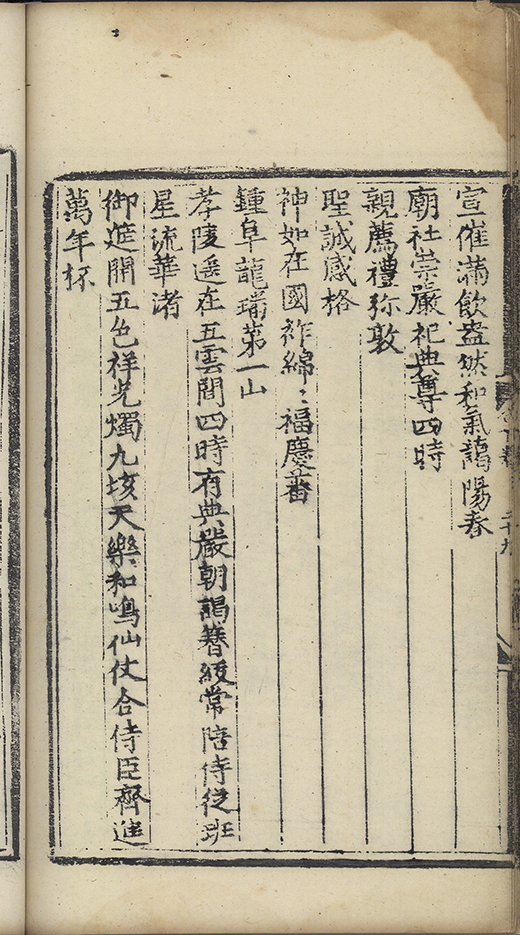 宣催滿飲盎然和氣藹陽春
廟社崇嚴祀典尊四時
親薦禮弥敦
聖誠感格
神如在國祚綿〻福慶蕃
鍾阜龍蟠第一山
孝陵遥在五雲間四時有典嚴朝謁簪紱常陪侍從班
星流華渚
御筵開五色祥光燭九垓天樂和鳴仙仗合侍臣齊進
萬年杯